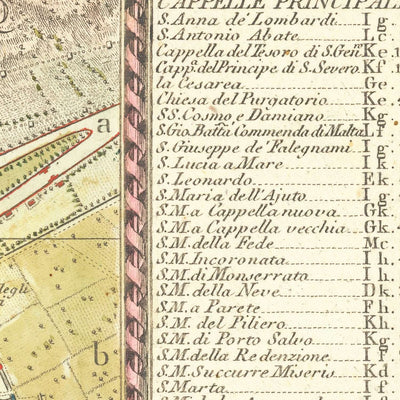 CAPPELLE PRINCIPALI
S. Anna de' Lombardi I g.
S. Antonio Abate L c.
Cappella del Tesoro di S. Gen.o K e.
Capp.a del Principe di S. Severo K f.
la Cesarea G e.
Chiesa del Purgatorio K e.
SS. Cosmo e Damiano K g.
S. Gio. Batta Commenda di Malta L f.
S. Giuseppe de' Falegnami I g.
S. Lucia a Mare I k.
S. Leonardo E k.
S. Maria dell' Ajuto I g.
S. M. a Cappella nuova G k.
S. M. a Cappella vecchia G k.
S. M. della Fede M c.
S. M. Incoronata I h.
S. M. di Monserrata I h.
S. M. della Neve D k.
S. M. a Parete F h.
S. M. del Piliero K h.
S. M. di Porto Salvo K g.
S. M. della Redenzione I f.
S. M. Succurre Miseris K d.
S. Marta I f.
a
b